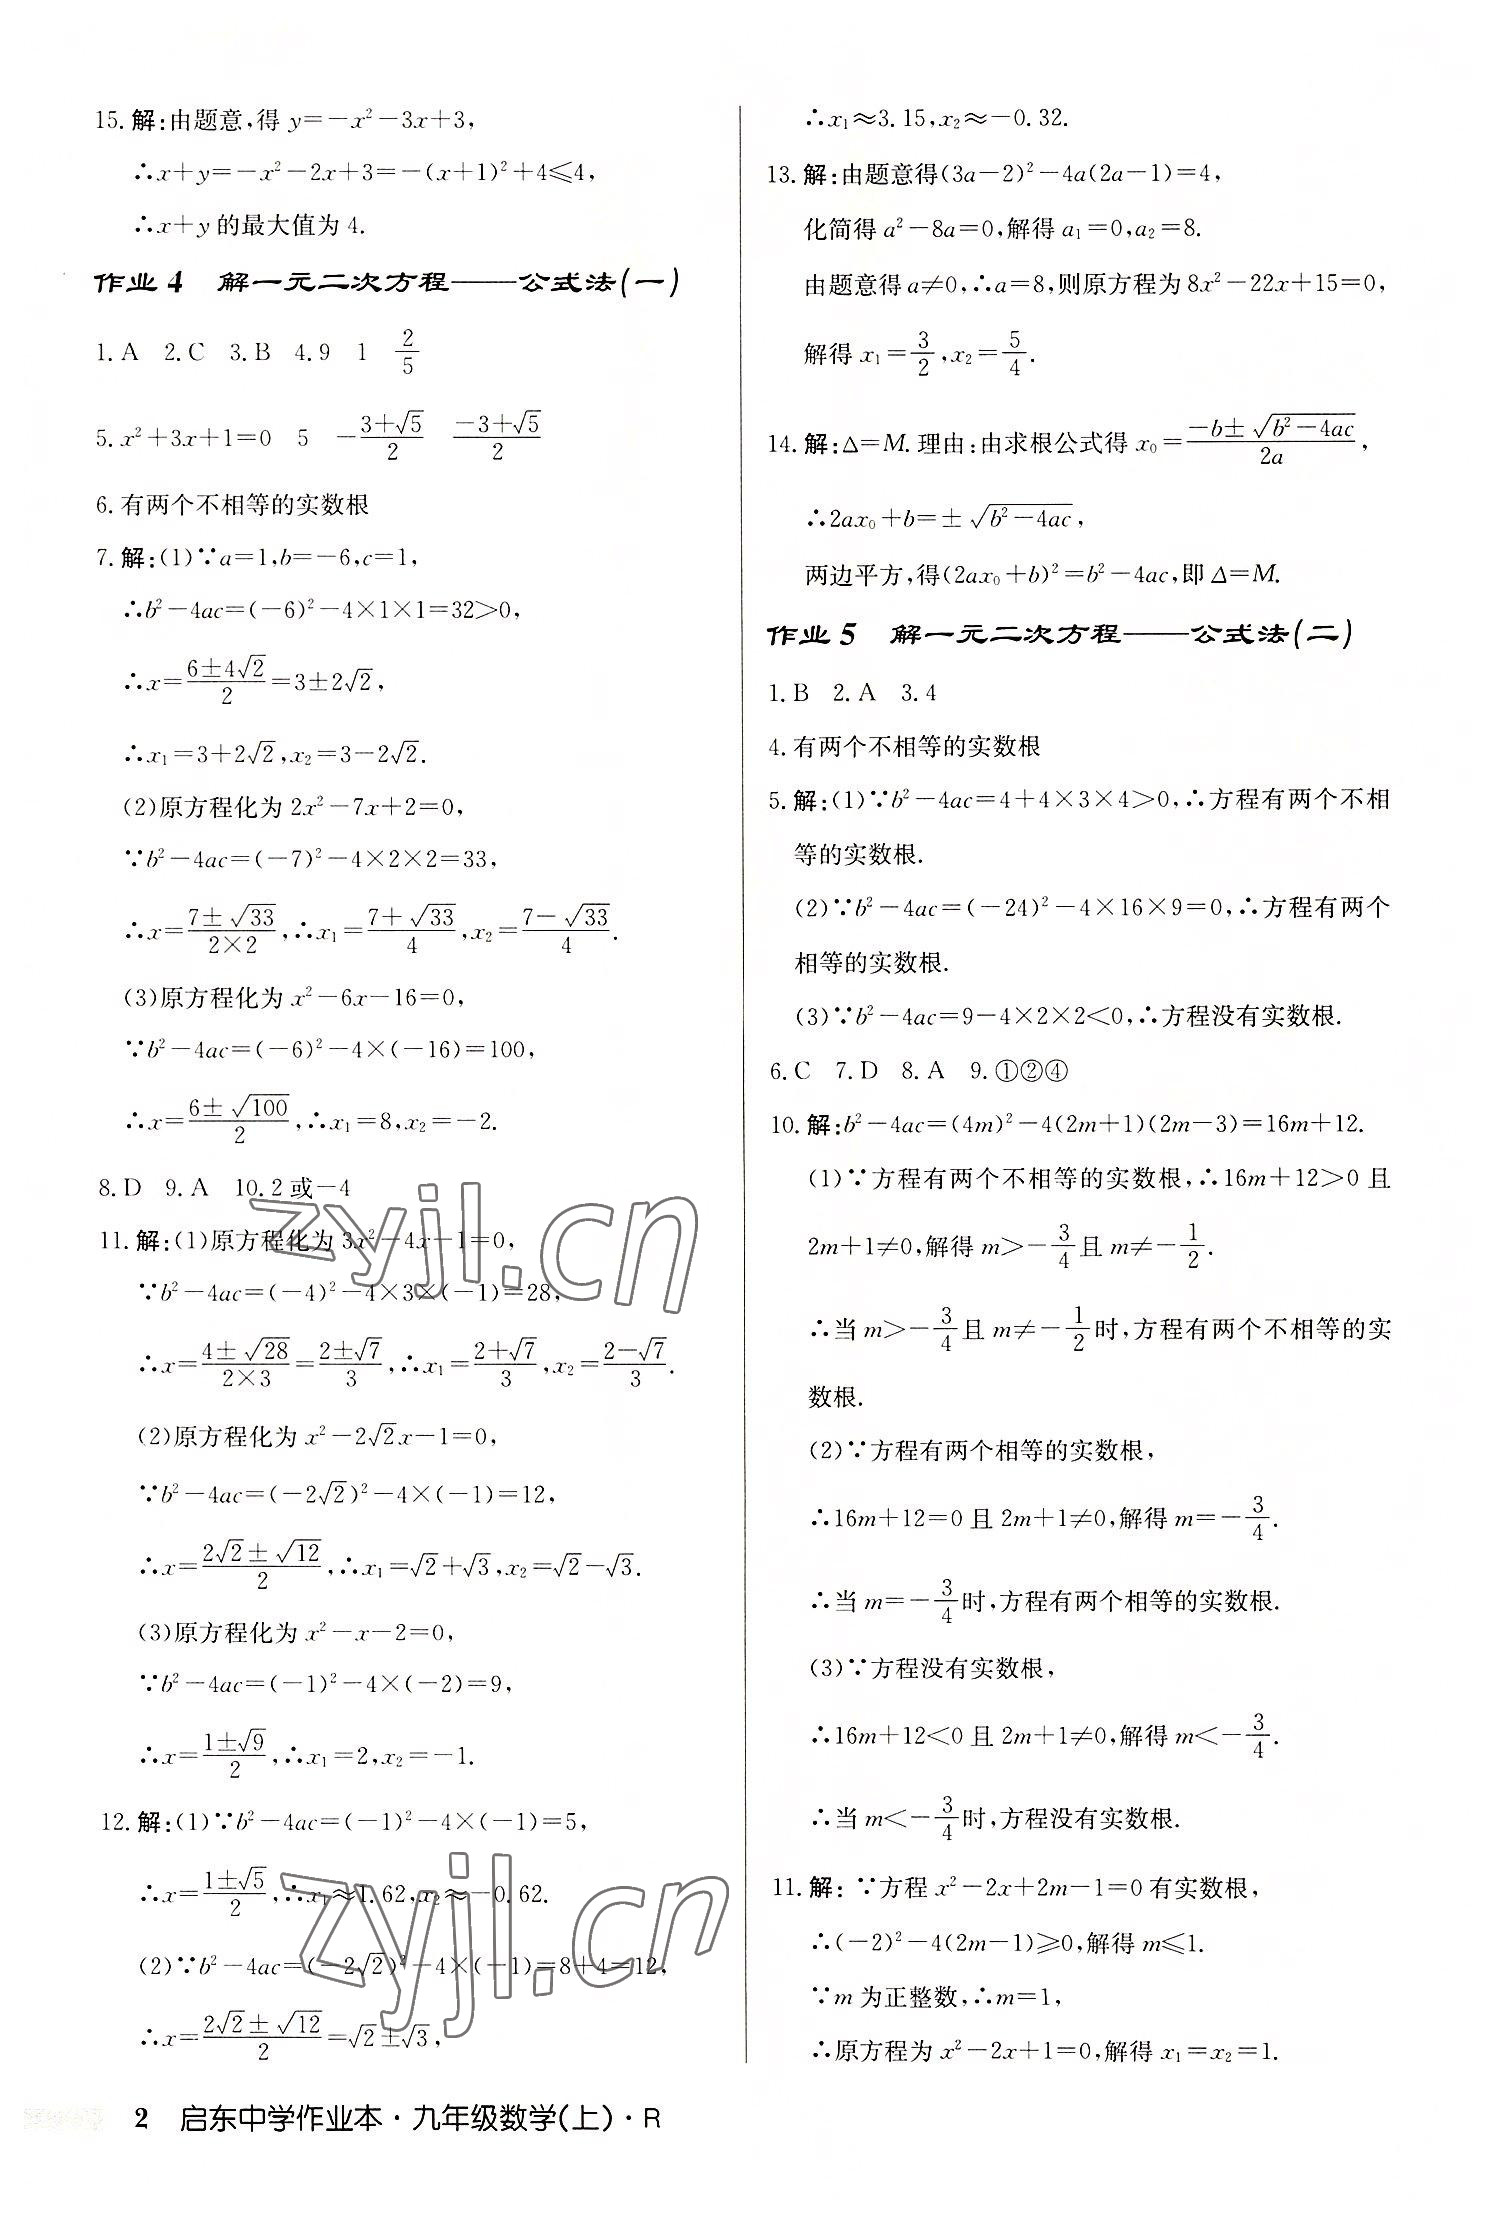 15.解:由题意,得 y=-x²-3x+3,
∴x+y=-x²-2x+3=-(x+1)²+4≤4,
∴x+y 的最大值为 4.
作业 4 解一元二次方程——公式法(一)
1.A 2.C 3.B 4.9 1 2/5
5.x²+3x+1=0 5 -(3+√5)/2 (-3+√5)/2
6.有两个不相等的实数根
7.解:(1)∵a=1,b=-6,c=1,
∴b²-4ac=(-6)²-4×1×1=32>0,
∴x=(6±4√2)/2=3±2√2,
∴x₁=3+2√2,x₂=3-2√2.
(2)原方程化为 2x²-7x+2=0,
∵b²-4ac=(-7)²-4×2×2=33,
∴x=(7±√33)/(2×2),∴x₁=(7+√33)/4,x₂=(7-√33)/4.
(3)原方程化为 x²-6x-16=0,
∵b²-4ac=(-6)²-4×(-16)=100,
∴x=(6±√100)/2,∴x₁=8,x₂=-2.
8.D 9.A 10.2 或-4
11.解:(1)原方程化为 3x²-4x-1=0,
∵b²-4ac=(-4)²-4×3×(-1)=28,
∴x=(4±√28)/(2×3)=(2±√7)/3,∴x₁=(2+√7)/3,x₂=(2-√7)/3.
(2)原方程化为 x²-2√2x-1=0,
∵b²-4ac=(-2√2)²-4×(-1)=12,
∴x=(2√2±√12)/2,∴x₁=√2+√3,x₂=√2-√3.
(3)原方程化为 x²-x-2=0,
∵b²-4ac=(-1)²-4×(-2)=9,
∴x=(1±√9)/2,∴x₁=2,x₂=-1.
12.解:(1)∵b²-4ac=(-1)²-4×(-1)=5,
∴x=(1±√5)/2,∴x₁≈1.62,x₂≈-0.62.
(2)∵b²-4ac=(-2√2)²-4×(-1)=8+4=12,
∴x=(2√2±√12)/2=√2±√3,
∴x₁≈3.15,x₂≈-0.32.
13.解:由题意得(3a-2)²-4a(2a-1)=4,
化简得 a²-8a=0,解得 a₁=0,a₂=8.
由题意得 a≠0,∴a=8,则原方程为 8x²-22x+15=0,
解得 x₁=3/2,x₂=5/4.
14.解:Δ=M.理由:由求根公式得 x₀=(-b±√(b²-4ac))/2a,
∴2ax₀+b=±√(b²-4ac),
两边平方,得(2ax₀+b)²=b²-4ac,即 Δ=M.
作业 5 解一元二次方程——公式法(二)
1.B 2.A 3.4
4.有两个不相等的实数根
5.解:(1)∵b²-4ac=4+4×3×4>0,∴方程有两个不相
等的实数根.
(2)∵b²-4ac=(-24)²-4×16×9=0,∴方程有两个
相等的实数根.
(3)∵b²-4ac=9-4×2×2<0,∴方程没有实数根.
6.C 7.D 8.A 9.①②④
10.解:b²-4ac=(4m)²-4(2m+1)(2m-3)=16m+12.
(1)∵方程有两个不相等的实数根,∴16m+12>0 且
2m+1≠0,解得 m>-3/4且 m≠-1/2.
∴当 m>-3/4且 m≠-1/2时,方程有两个不相等的实
数根.
(2)∵方程有两个相等的实数根,
∴16m+12=0 且 2m+1≠0,解得 m=-3/4.
∴当 m=-3/4时,方程有两个相等的实数根.
(3)∵方程没有实数根,
∴16m+12<0 且 2m+1≠0,解得 m<-3/4.
∴当 m<-3/4时,方程没有实数根.
11.解: ∵方程 x²-2x+2m-1=0 有实数根,
∴(-2)²-4(2m-1)≥0,解得 m≤1.
∵m 为正整数,∴m=1,
∴原方程为 x²-2x+1=0,解得 x₁=x₂=1.
2 启东中学作业本·九年级数学(上)·R
zyjl.cn
zyjl.cn